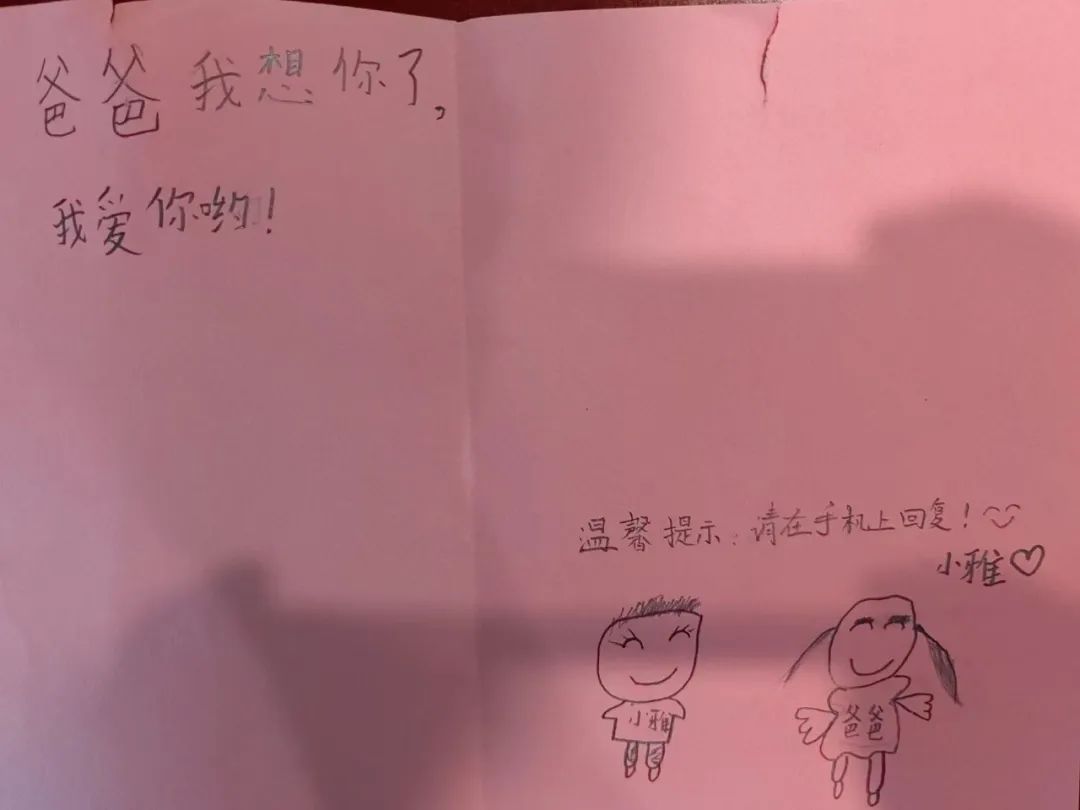 爸爸我想你了,
我爱你哟!
温馨提示:请在手机上回复!
小雅
小雅
爸爸